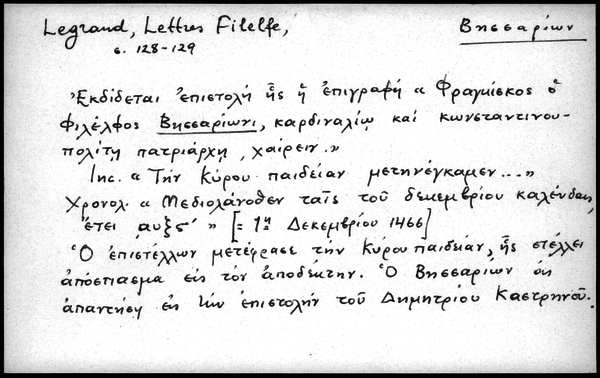 Legrand, Lettres Filelfe, Βησσαρίων
σ. 128-129
Ἐκδίδεται ἐπιστολή ἧς ἡ ἐπιγραφή « Φραγκίσκος ὁ
Φιλέλφος Βησσαρίωνι, καρδιναλίῳ καί κωνσταντινου-
πολίτῃ πατριάρχῃ, χαίρειν.»
Inc. « Τήν Κύρου παιδείαν μετηνέγκαμεν...»
Χρονολ. « Μεδιολάνοθεν ταῖς τοῦ δεκεμβρίου καλένδαις,
ἔτει ͵αυξϛ´ » [= 1η Δεκεμβρίου 1466]
Ὁ ἐπιστέλλων μετέφρασε τήν Κύρου παιδείαν, ἧς στέλλει
ἀπόσπασμα εἰς τόν ἀποδέκτην. Ὁ Βησσαρίων
ἀπαντήσῃ τήν ἐπιστολήν τοῦ Δημητρίου Καστρηνοῦ.